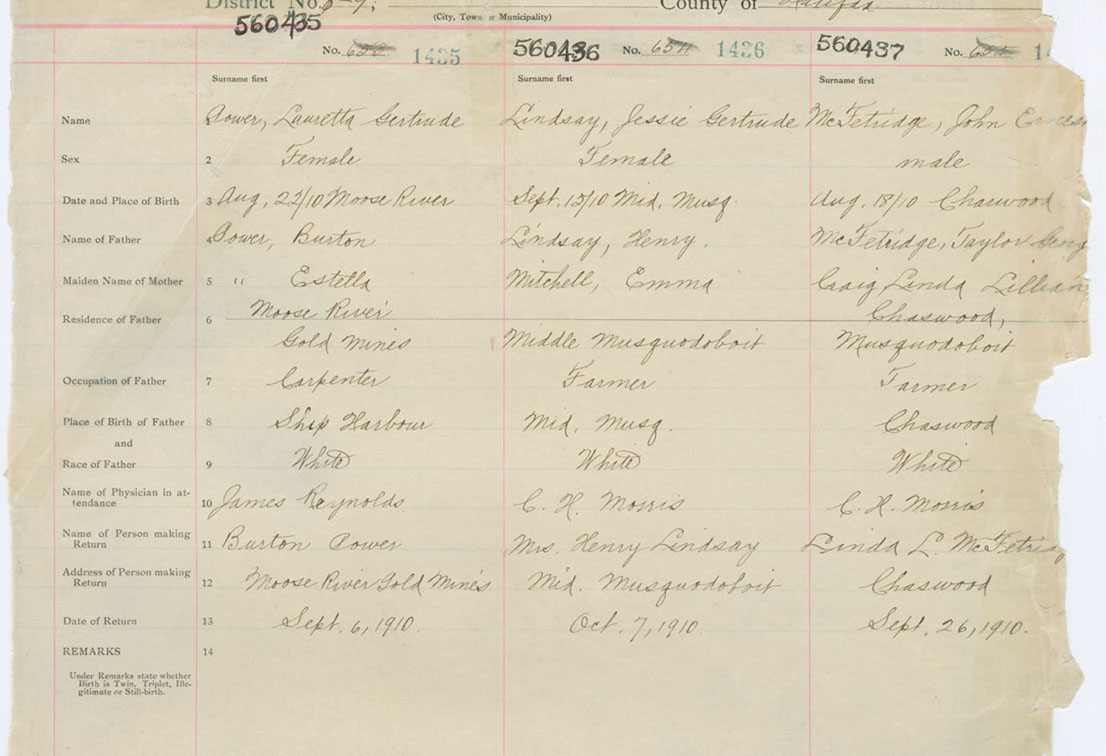 District No. 6-7, County of Halifax
(City, Town or Municipality)
560435 560436 560437
No. 1435 No. 654 1436 No. 14
Surname first Surname first Surname first
Name 1 Power, Lauretta Gertrude Lindsay, Jessie Gertrude McFetridge, John Ernes
Sex 2 Female Female male
Date and Place of Birth 3 Aug, 22/10 Moose River Sept. 15/10 Mid. Musq. Aug, 18/10 Chaswood
Name of Father 4 Power, Burton Lindsay, Henry. McFetridge, Taylor
Maiden Name of Mother 5 " Estella Mitchell, Emma Craig Linda Lillian
Moose River Chaswood,
Residence of Father 6
Gold Mines Middle Musquodoboit Musquodoboit
Occupation of Father 7 Carpenter Farmer Farmer
Place of Birth of Father 8 Ship Harbour Mid. Musq. Chaswood
and
Race of Father 9 White White White
Name of Physician in at-
tendance 10 James Reynolds C. H. Morris C. H. Morris
Name of Person making
Return 11 Burton Power Mrs. Henry Lindsay Linda L. McFetrid
Address of Person making
Return 12 Moose River Gold Mines Mid. Musquodoboit Chaswood
Date of Return 13 Sept. 6, 1910. Oct. 7, 1910. Sept. 26, 1910.
REMARKS 14
Under Remarks state whether
Birth is Twin, Triplet, Ille-
gitimate or Still-birth.